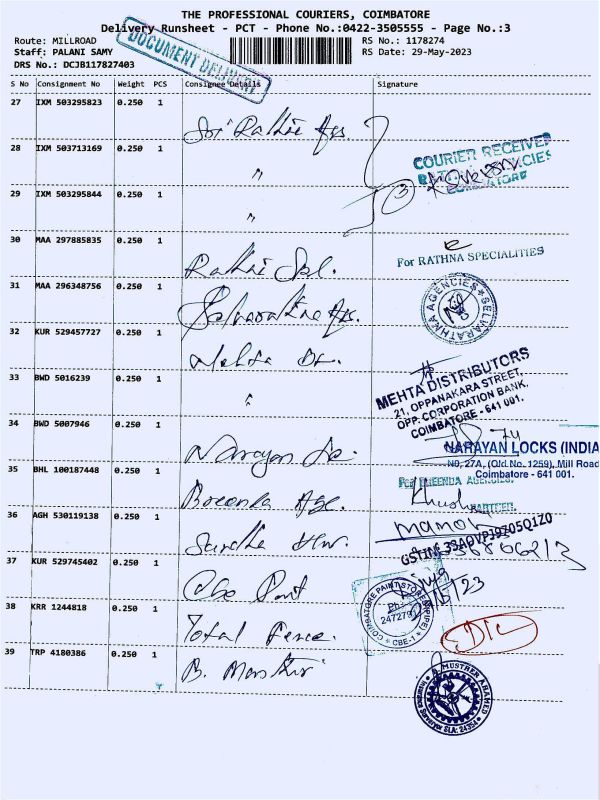 THE PROFESSIONAL COURIERS, COIMBATORE
Delivery Runsheet - PCT - Phone No.:0422-3505555 - Page No.:3
Route: MILLROAD
RS No.: 1178274
Staff: PALANI SAMY
RS Date: 29-May-2023
DRS No.: DCJB117827403
DOCUMENT DELIVERY
S No Consignment No Weight PCS Consignee Details Signature
27 IXM 503295823 0.250 1
Sri Rathi Ags
28 IXM 503713169 0.250 1
"
COURIER RECEIVED
COIMBATORE
29 IXM 503295844 0.250 1
"
3
30 MAA 297885835 0.250 1
Rathi Spl.
For RATHNA SPECIALITIES
31 MAA 296348756 0.250 1
Selvarathna Ags.
SELVARATHNA AGENCIES
32 KUR 529457727 0.250 1
Mehta Dr.
33 BWD 5016239 0.250 1
"
MEHTA DISTRIBUTORS
21, OPPANAKARA STREET,
OPP. CORPORATION BANK,
COIMBATORE - 641 001.
34 BWD 5007946 0.250 1
Narayan
NARAYAN LOCKS (INDIA
NO, 27A, (Old No. 1259), Mill Road
Coimbatore - 641 001.
35 BHL 100187448 0.250 1
Khush
PARTNER.
36 AGH 530119138 0.250 1
manoj
GSTIN:
37 KUR 529745402 0.250 1
Cbe Paint
COIMBATORE PAINT STORE
Ph:
CBE-1
/5/23
38 KRR 1244818 0.250 1
Total Fence.
39 TRP 4180386 0.250 1
B. Mastrir
B. MUSTRER ARAMED
Insurance Surveyor SLA: 24354